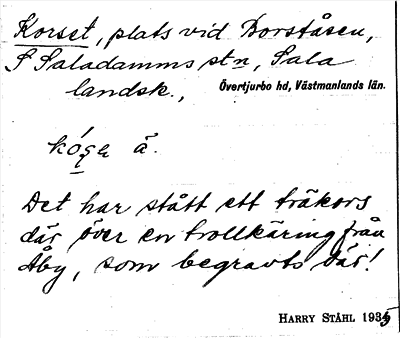 Korset, plats vid Borståsen,
S Saladamms stn, Sala
landsk., Övertjurbo hd, Västmanlands län.
ä.
Det har stått ett träkors
där över en trollkäring från
Åby, som begravts där!
HARRY STÅHL 1935